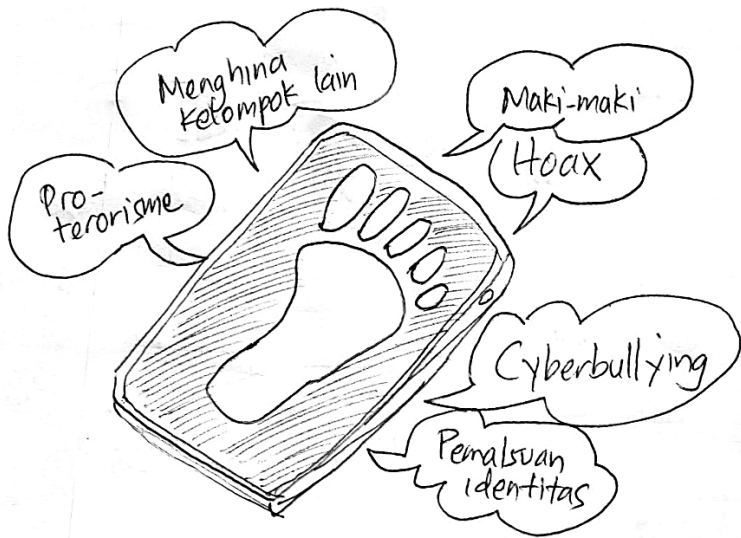 Menghina
kelompok lain
Maki-maki
Hoax
Pro-
terorisme
Cyberbullying
Pemalsuan
identitas